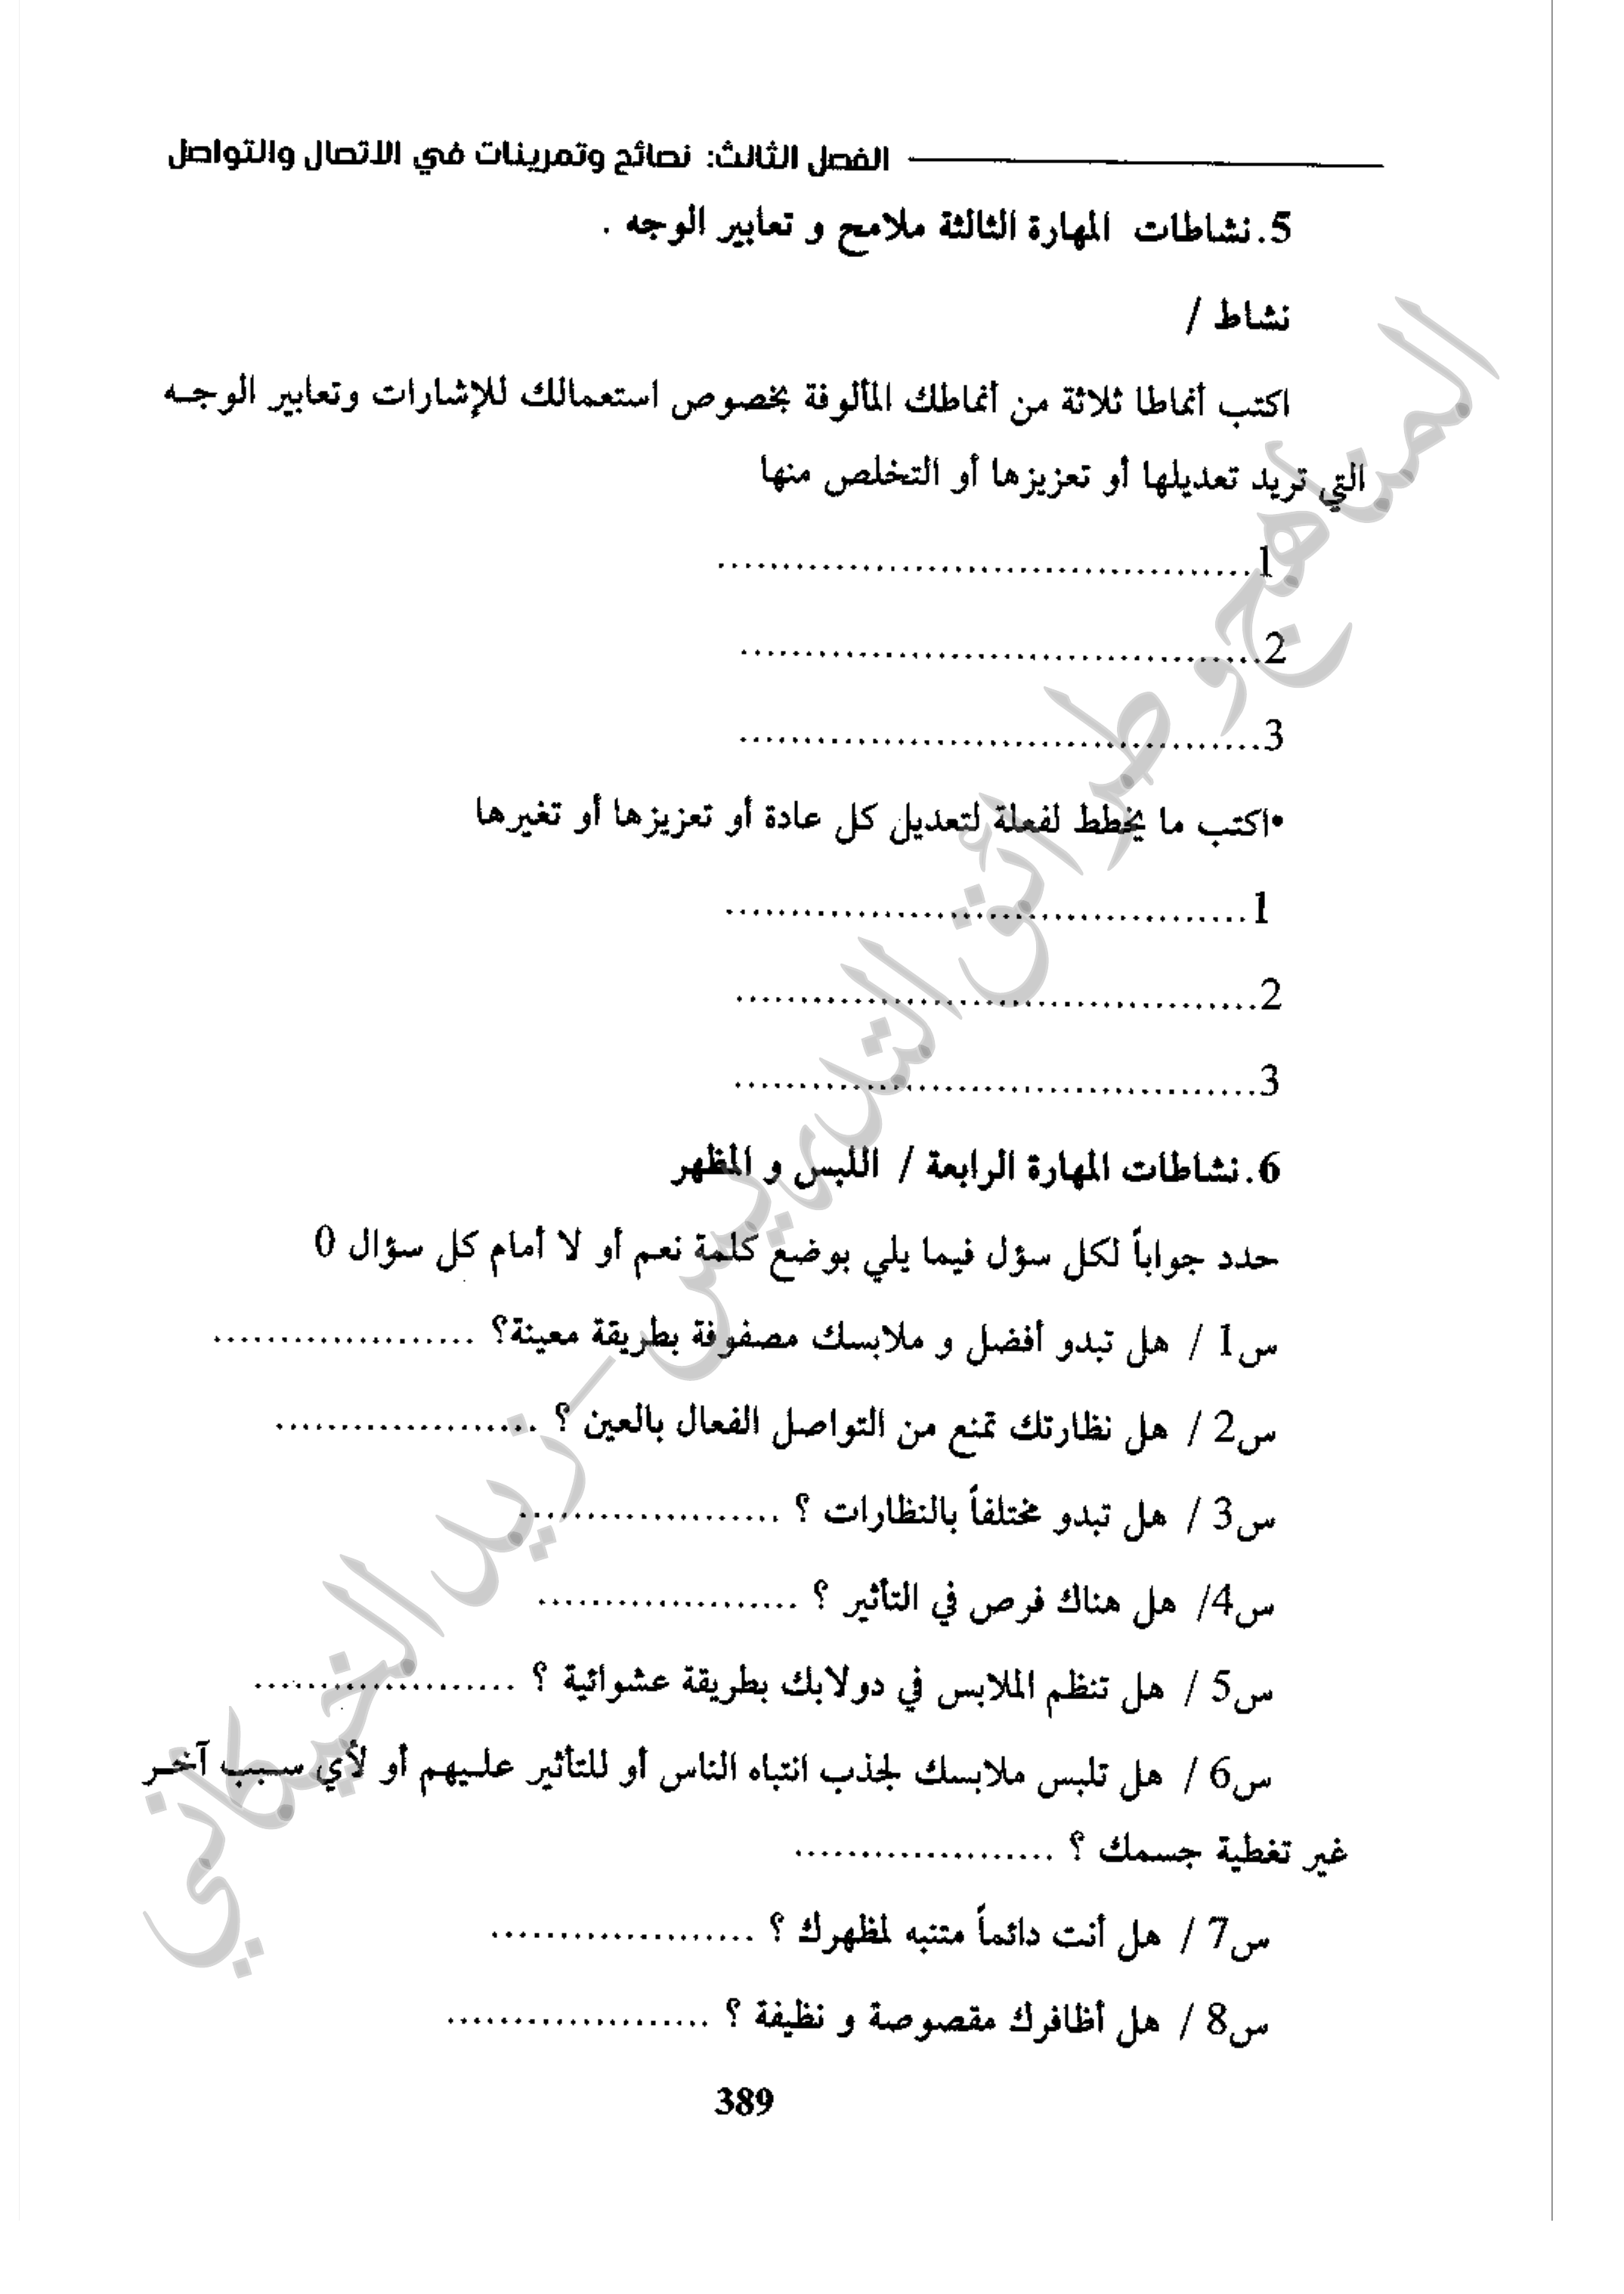 الفصل الثالث: نصائح وتمرينات في الاتصال والتواصل
5.نشاطات المهارة الثالثة ملامح و تعابير الوجه .
نشاط /
اكتب أنماطا ثلاثة من أنماطك المألوفة بخصوص استعمالك للإشارات وتعابير الوجـه
التي تريد تعديلها أو تعزيزها أو التخلص منها
1........................................
2........................................
3........................................
•اكتب ما يخطط لفعلة لتعديل كل عادة أو تعزيزها أو تغيرها
1........................................
2........................................
3........................................
6.نشاطات المهارة الرابعة / اللبس و المظهر
حدد جواباً لكل سؤل فيما يلي بوضع كلمة نعم أو لا أمام كل سؤال 0
س1 / هل تبدو أفضل و ملابسك مصفوفة بطريقة معينة؟ ....................
س2 / هل نظارتك تمنع من التواصل الفعال بالعين ؟ ....................
س3 / هل تبدو مختلفاً بالنظارات ؟ ....................
س4/ هل هناك فرص في التأثير ؟ ....................
س5 / هل تنظم الملابس في دولابك بطريقة عشوائية ؟ ....................
س6 / هل تلبس ملابسك لجذب انتباه الناس أو للتأثير علـيهم أو لأي سـبب آخـر
غير تغطية جسمك ؟ ....................
س7 / هل أنت دائماً متنبه لمظهرك ؟ ....................
س8 / هل أظافرك مقصوصة و نظيفة ؟ ....................
389
المناهج و طرائق التدريس - زيد الخيكاني